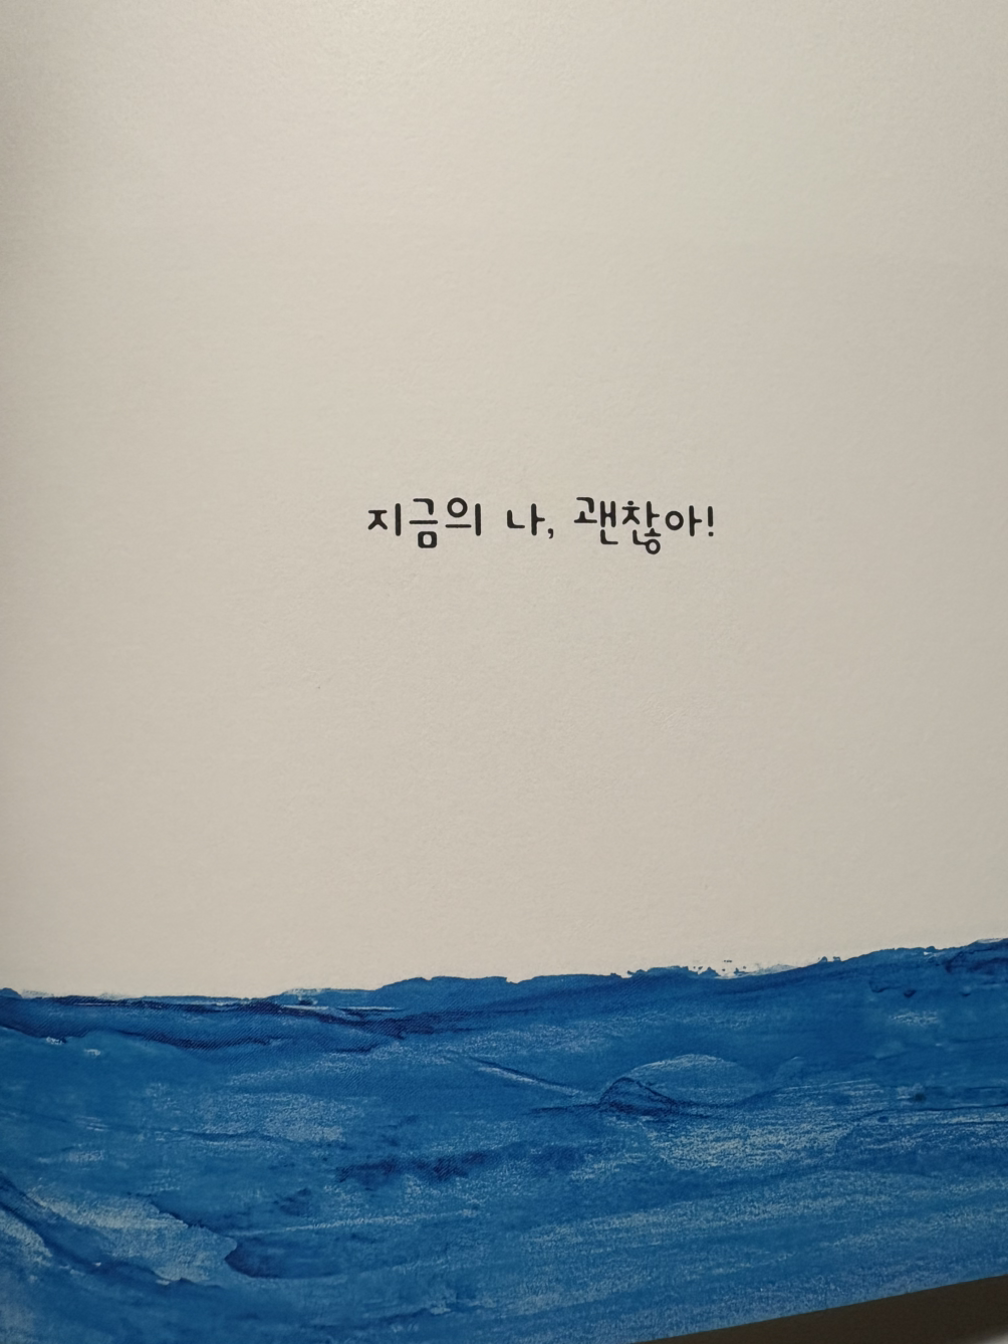 지금의 나, 괜찮아!